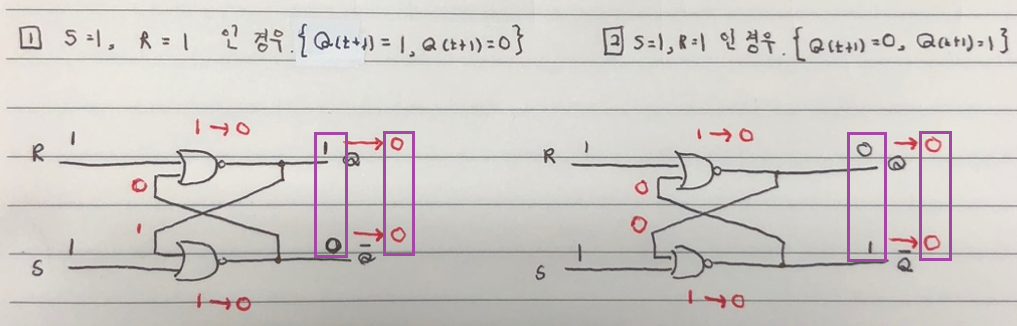 1 S=1, R=1 인 경우. {Q(t+1)=1, Q(t+1)=0}
2 S=1, R=1 인 경우. {Q(t+1)=0, Q(t+1)=1}
1→0
R 1 1 Q → 0
0
1
1 0 Q̅ → 0
S
1→0
1→0
R 1 0 Q → 0
0
0
1 1 Q̅ → 0
S
1→0